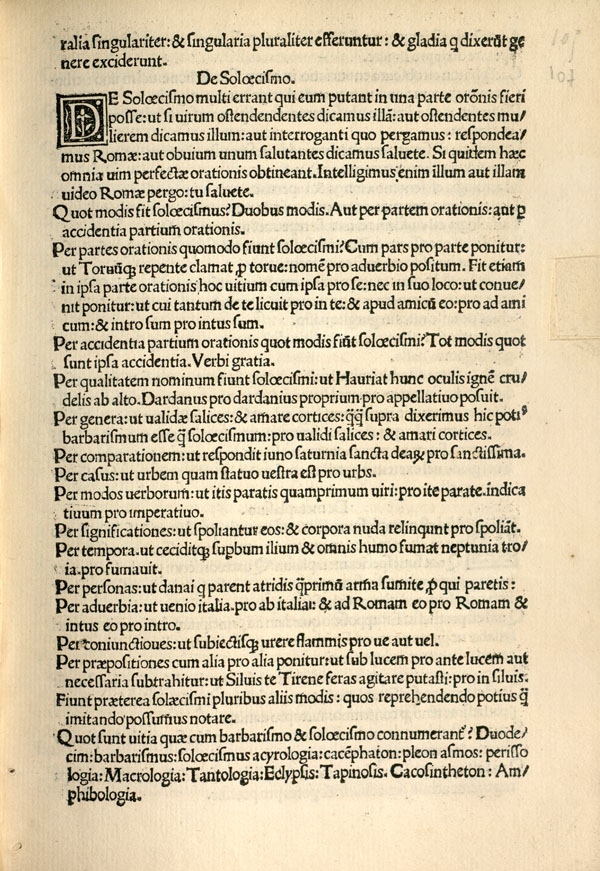 ralia singulariter: & singularia pluraliter efferuntur: & gladia q dixerũt ge
nere exciderunt.
De Solœcismo.
DE Solœcismo multi errant qui eum putant in una parte orõnis fieri
posse: ut si uirum ostendendentes dicamus illã: aut ostendentes mu/
lierem dicamus illum: aut interroganti quo pergamus: respondea/
mus Romæ: aut obuium unum salutantes dicamus saluete. Si quidem hæc
omnia uim perfectæ orationis obtineant. Intelligimus enim illum aut illam
uideo Romæ pergo: tu saluete.
Quot modis fit solœcismus? Duobus modis. Aut per partem orationis: aut ꝑ
accidentia partium orationis.
Per partes orationis quomodo fiunt solœcismi? Cum pars pro parte ponitur:
ut Toruũqꝫ repente clamat ꝓ torue: nomẽ pro aduerbio positum. Fit etiam
in ipsa parte orationis hoc uitium cum ipsa pro se: nec in suo loco: ut conue/
nit ponitur: ut cui tantum de te licuit pro in te: & apud amicũ eo: pro ad ami
cum: & intro sum pro intus sum.
Per accidentia partium orationis quot modis fiũt solœcismi? Tot modis quot
sunt ipsa accidentia. Verbi gratia.
Per qualitatem nominum fiunt solœcismi: ut Hauriat hunc oculis ignẽ cru/
delis ab alto. Dardanus pro dardanius proprium pro appellatiuo posuit.
Per genera: ut ualidæ salices: & amare cortices: q̃q̃ supra dixerimus hic poti⁹
barbarismum esse q̃ solœcismum: pro ualidi salices: & amari cortices.
Per comparationem: ut respondit iuno saturnia sancta deaꝝ pro sanctissima.
Per casus: ut urbem quam statuo uestra est pro urbs.
Per modos uerborum: ut itis paratis quamprimum uiri: pro ite parate. indica
tiuum pro imperatiuo.
Per significationes: ut spoliantur eos: & corpora nuda relinqunt pro spoliãt.
Per tempora. ut ceciditqꝫ supbum ilium & omnis humo fumat neptunia tro/
ia. pro fumauit.
Per personas: ut danai q parent atridis q̃primũ arma sumite ꝓ qui paretis:
Per aduerbia: ut uenio italia. pro ab italia: & ad Romam eo pro Romam &
intus eo pro intro.
Per coniunctioues: ut subiectisqꝫ urere flammis pro ue aut uel.
Per præpositiones cum alia pro alia ponitur: ut sub lucem pro ante lucem aut
necessaria subtrahitur: ut Siluis te Tirene feras agitare putasti: pro in siluis.
Fiunt præterea solæcismi pluribus aliis modis: quos reprehendendo potius q̃
imitando possumus notare.
Quot sunt uitia quæ cum barbarismo & solœcismo connumerantˀ? Duode/
cim: barbarismus: solœcismus acyrologia: cacẽphaton: pleon asmos: perisso
logia: Macrologia: Tantologia: Eclypsis: Tapinosis. Cacosintheton: Am/
phibologia.
107